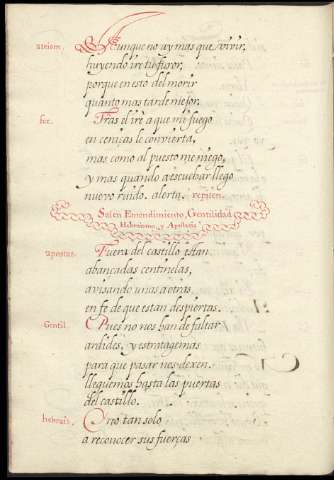 ateism. Aunque no ay mas que vivir,
huyendo ire tu furor,
porque en esto del morir
quanto mas tarde mejor.
fee. Tras el ire a que mi fuego
en ceniças le convierta,
mas como al puesto me niego,
y mas quando a escuchar llego
nuevo ruido. alerta, repiten.
Salen Entendimiento, Gentilidad
Hebraismo, y Apostasia
apostas. Fuera del castillo estan
abançadas centinelas,
avisando unas a otras
en fe de que estan despiertas.
Gentil. Pues no nos han de faltar
ardides, y estratagemas
para que pasar nos dexen.
lleguemos hasta las puertas
del castillo.
hebrais. Oreo tan solo
a reconocer sus fuerças